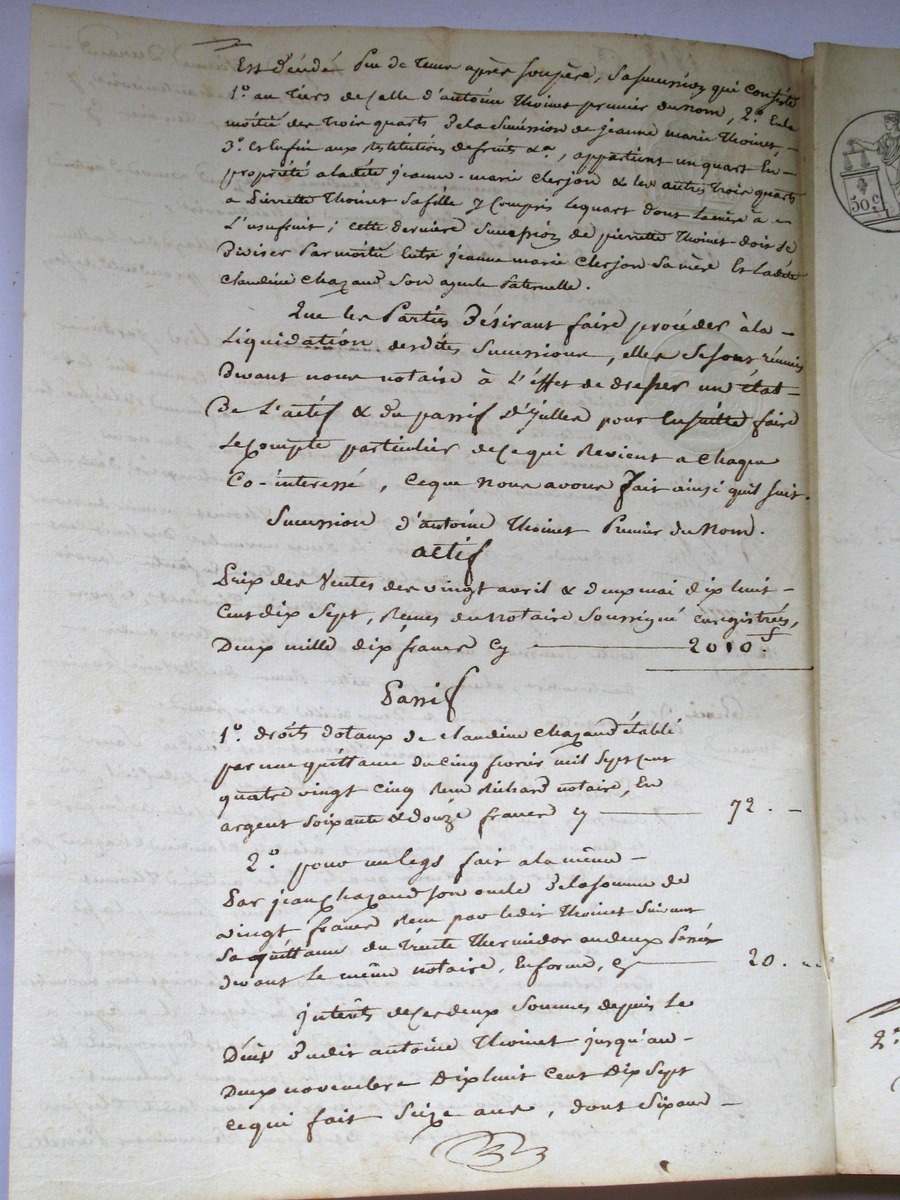 Est décédé peu de temps après son père, sa succession qui consiste
1.º au tiers de celle d'antoine Thoinet premier du nom, 2.º En la
moitié des trois quarts de la succession de jeanne marie Thoinet,
3.º Et Enfin aux restitutions de fruits &.a, appartient un quart En
propriété a ladite jeanne-marie clerjon & les autres trois quarts
a Pierrette Thoinet sa fille y compris le quart dont la mère a
L'usufruit ; cette derniere succession de pierrette Thoinet doit se
Diviser Par moitié Entre jeanne marie Clerjon sa mère Et ladite
claudine chazaud son ayeule Paternelle.
Que les Parties Désirant faire procéder à la
Liquidation desdites successions, elles se sont réunies
Devant nous notaire à L'éffet de dresser un état
De L'actif & du passif D'icelles pour Ensuitte faire
Le compte particulier de ce qui Revient a chaque
Co-interessé, ce que nous avons fait ainsi qu'il suit.
Succession d'antoine Thoinet Premier du Nom.
actif
Prix des Ventes des vingt avril & deux mai dix huit
Cent dix Sept, Reçues du Notaire Soussigné Enregistrées,
Deux mille dix francs Cy 2010.f
Passif
1.º droits dotaux de claudine chazaud établi
par une quittance du cinq fevrier mil Sept cent
quatre vingt cinq Reçu Richard notaire, En
argent soixante & douze francs cy 72. -
2.º pour un legs fait a la même
Par jean chazaud son oncle de la somme de
vingt francs Reçu par ledit Thoinet suivant
sa quittance du trente thermidor an deux Passée
devant le même notaire, En forme, cy 20. -
intérêts de ces deux sommes depuis le
Décès dudit antoine Thoinet jusqu'au
Deux novembre Dix huit Cent Dix Sept
ce qui fait Seize ans, dont Six aux
50 c
2.º